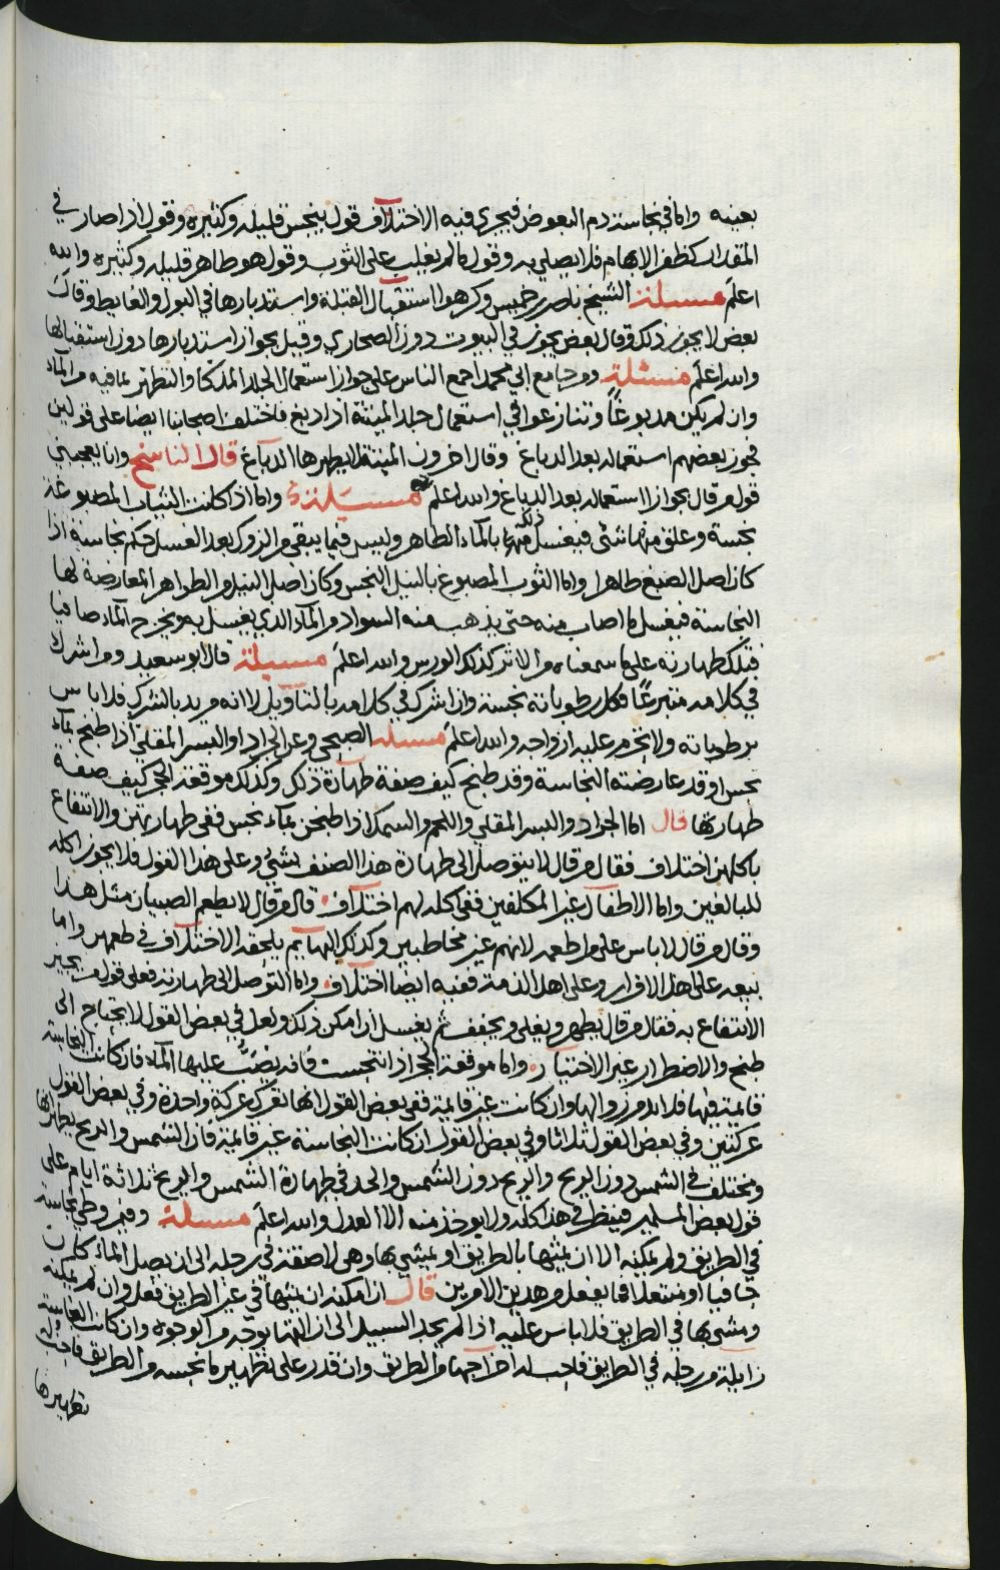 بعينه واما في نجاسة دم البعوض فيجري فيه الاختلاف قول ينجس قليله وكثيره وقول اذا صار في
المقدار كظفر الابهام فلا يصلي به وقول ما لم يغلب على الثوب وقول هو طاهر قليله وكثيره والله
اعلم مسئلة الشيخ ناصر بن خميس وكرهوا استقبال القبلة واستدبارها في البول والغايط وقال
بعض لا يجوز ذلك وقال بعض يجوز في البيوت دون الصحاري وقيل بجواز استدبارها دون استقبالها
والله اعلم مسئلة ومن جامع ابي محمد اجمع الناس على جواز استعمال الجلد المذكا والتطهر بما فيه من الماء
وان لم يكن مدبوغا وتنازعوا في استعمال جلد الميتة اذا دبغ فاختلف اصحابنا ايضا على قولين
فجوز بعضهم استعماله بعد الدباغ وقال اخرون الميتة لا يطهرها الدباغ قال الناسخ وانا يعجبني
قول من قال بجواز استعماله بعد الدباغ والله اعلم مسئلة واما اذا كانت الثياب المصبوغة
نجسة وعلق منها شئ فيغسل ذلك بالماء الطاهر وليس فيما يبقى من الزوك بعد الغسل حكم نجاسة اذا
كان اصل الصبغ طاهرا واما الثوب المصبوغ بالنيل النجس وكان اصل النيل من الطواهر المعارضة لها
النجاسة فيغسل ما اصاب منه حتى يذهب منه السواد من الماء الذي يغسل به ويخرج الماء صافيا
فتلك طهارته على ما سمعناه من الاثر كذلك الورس والله اعلم مسئلة قال ابو سعيد ومن اشرك
في كلامه متبرعا فكل رطوباته نجسة وان اشرك في كلامه بالتاويل لا انه مريد بالشرك فلا باس
برطوباته ولا تحرم عليه ازواجه والله اعلم مسئلة الصبحي وعن الجراد والبسر المقلي اذا طبخ بماء
نجس او قد عارضته النجاسة وقد طبخ كيف صفة طهارة ذلك وكذلك موقعة الجح كيف صفة
طهارتها قال اما الجراد والبسر المقلي واللحم والسمك اذا طبخن بماء نجس ففي طهارتهن والانتفاع
باكلهن اختلاف فقال من قال لا يتوصل الى طهارة هذا الصنف بشئ وعلى هذا القول فلا يجوز اكله
للبالغين واما الاطفال غير المكلفين ففي اكله لهم اختلاف قال من قال لا يطعم الصبيان مثل هذا
وقال من قال لا باس على من اطعمه لانهم غير مخاطبين وكذلك البهايم يلحقه الاختلاف في طعمهن واما
بيعه على اهل الاقرار وعلى اهل الذمة ففيه ايضا اختلاف واما التوصل الى طهارته فعلى قول من يجيز
الانتفاع به فقال من قال يطهر ويغلى ويجفف ثم يغسل ان امكن ذلك ولعل في بعض القول لا يحتاج الى
طبخ والاضطرار غير الاختيار واما موقعة الجراد اذا تنجست فانه يصب عليها الماء فان كانت النجاسة
قايمة فيها فلا بد من زوالها وان كانت غير قايمة ففي بعض القول انها تعرك عركة واحدة وفي بعض القول
عركتين وفي بعض القول ثلاثا وفي بعض القول ان كانت النجاسة غير قايمة فان الشمس والريح يطهرانها
ويختلف في الشمس دون الريح والريح دون الشمس والحد في طهارة الشمس والريح ثلاثة ايام على
قول بعض المسلمين فينظر في هذا كله ولا يوخذ منه الا العدل والله اعلم مسئلة وفيمن وطي نجاسة
في الطريق ولم يمكنه الا ان يمثها بالطريق او يمشي بها وهي لاصقة في رجله الى ان يصل الماء كان
حافيا او منتعلا فما يفعل من هذين الامرين قال ان امكنه ان يمثها في غير الطريق فعل وان لم يمكنه
ومشى بها في الطريق فلا باس عليه اذا لم يجد السبيل الى ازالتها بوجه من الوجوه وان كانت النجاسة
زايلة من رجله في الطريق فاحب له اخراجها من الطريق وان قدر على تطهير ما نجسه من الطريق فاحب له
تطهيرها